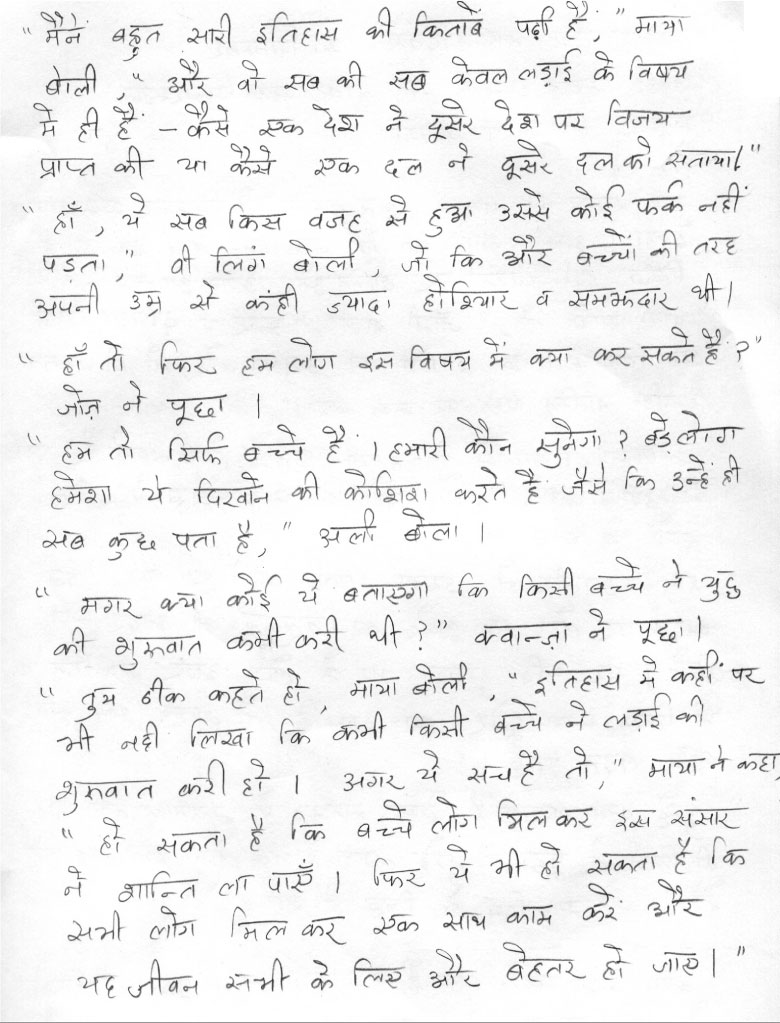 "मैंने बहुत सारी इतिहास की किताबें पढ़ी हैं," माया
बोली, "और वो सब की सब केवल लड़ाई के विषय
में ही हैं - कैसे एक देश ने दूसरे देश पर विजय
प्राप्त की या कैसे एक दल ने दूसरे दल को सताया।"
"हाँ, ये सब किस वजह से हुआ उससे कोई फर्क नहीं
पड़ता," वी लिंग बोली, जो कि और बच्चों की तरह
अपनी उम्र से कंही ज्यादा होशियार व समझदार थी।
"हाँ तो फिर हम लोग इस विषय में क्या कर सकते हैं?"
जोज़ ने पूछा।
"हम तो सिर्फ बच्चे हैं। हमारी कौन सुनेगा? बड़े लोग
हमेशा ये दिखाने की कोशिश करते हैं जैसे कि उन्हें ही
सब कुछ पता है," अली बोला।
"मगर क्या कोई ये बताएगा कि किसी बच्चे ने युद्ध
की शुरुवात कभी करी थी?" क्वान्ज़ा ने पूछा।
"तुम ठीक कहते हो, माया बोली, "इतिहास में कहीं पर
भी नही लिखा कि कभी किसी बच्चे ने लड़ाई की
शुरुवात करी हो। अगर ये सच है तो," माया ने कहा,
"हो सकता है कि बच्चे लोग मिलकर इस संसार
ने शान्ति ला पाएँ। फिर ये भी हो सकता है कि
सभी लोग मिल कर एक साथ काम करें और
यह जीवन सभी के लिए और बेहतर हो जाए।"